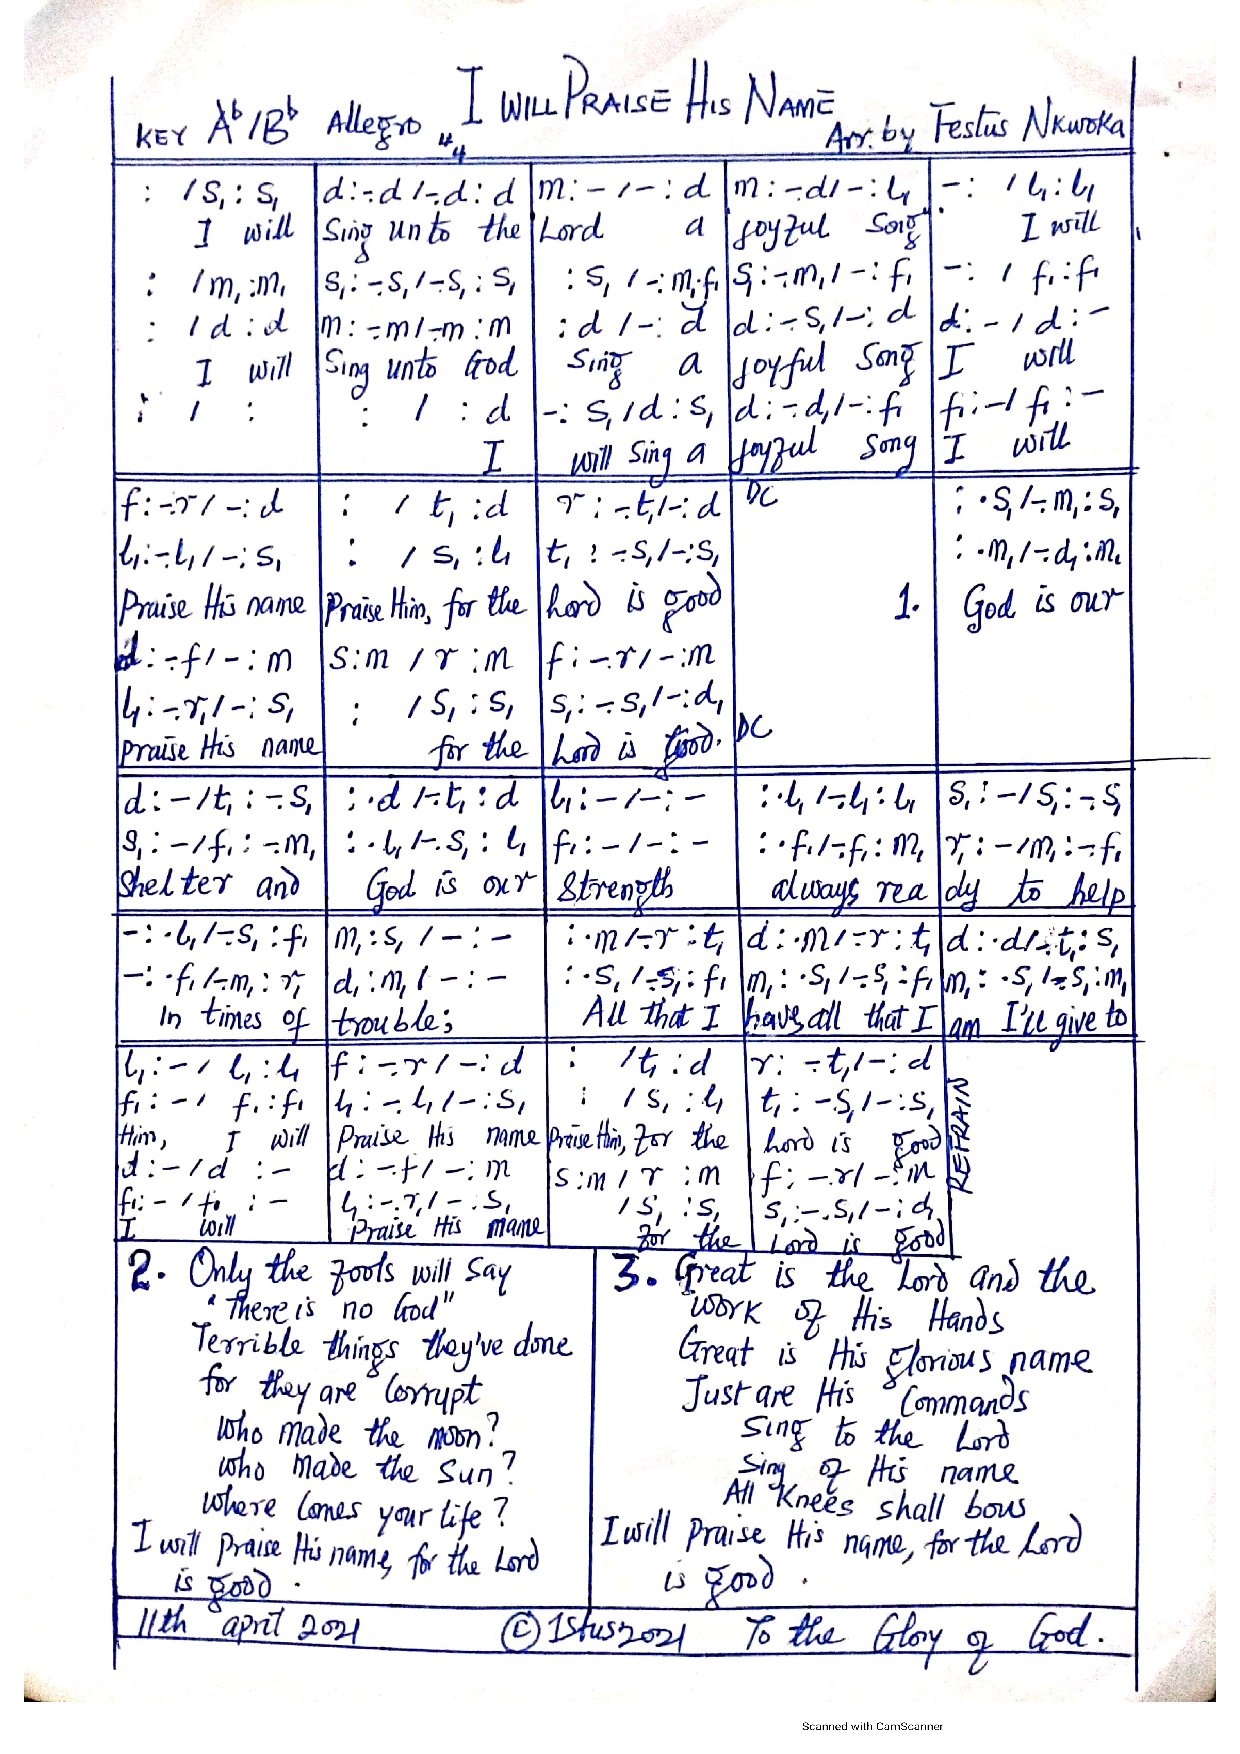 I WILL PRAISE HIS NAME
KEY A♭/B♭ Allegro 4/4 Arr. by Festus Nkwoka
: /s₁:s₁ | d:-.d/-.d:d | m:-/-:d | m:-.d/-:l₁ | -: /l₁:l₁
I will | Sing unto the | Lord a | joyful song | I will
: /m₁:m₁ | s₁:-.s₁/-.s₁:s₁ | :s₁/-:m₁.f₁ | s₁:-.m₁/-:f₁ | -: /f₁:f₁
: /d:d | m:-.m/-.m:m | :d/-:d | d:-.s₁/-:d | d:-/d:-
I will | Sing unto God | Sing a | joyful Song | I will
: / : | : / :d | -:s₁/d:s₁ | d:-.d₁/-:f₁ | f₁:-/f₁:-
I | will Sing a | joyful Song | I will
f:-.r/-:d | : /t₁:d | r:-.t₁/-:d | DC | :.s₁/-.m₁:s₁
l₁:-.l₁/-:s₁ | : /s₁:l₁ | t₁:-.s₁/-:s₁ | | :.m₁/-.d₁:m₁
Praise His name | Praise Him, for the | Lord is good | 1. | God is our
d:-.f/-:m | s:m/r:m | f:-.r/-:m
l₁:-.r₁/-:s₁ | : /s₁:s₁ | s₁:-.s₁/-:d₁
praise His name | for the | Lord is Good. | DC
d:-/t₁:-.s₁ | :.d/-.t₁:d | l₁:-/-:- | :.l₁/-.l₁:l₁ | s₁:-/s₁:-.s₁
s₁:-/f₁:-.m₁ | :.l₁/-.s₁:l₁ | f₁:-/-:- | :.f₁/-.f₁:m₁ | r₁:-/m₁:-.f₁
Shelter and | God is our | Strength | always rea | dy to help
-:.l₁/-.s₁:f₁ | m₁:s₁/-:- | :.m/-.r:t₁ | d:.m/-.r:t₁ | d:.d/-.t₁:s₁
-:.f₁/-.m₁:r₁ | d₁:m₁/-:- | :.s₁/-.s₁:f₁ | m₁:.s₁/-.s₁:f₁ | m₁:.s₁/-.s₁:m₁
In times of | trouble; | All that I | have, all that I | am I'll give to
l₁:-/l₁:l₁ | f:-.r/-:d | : /t₁:d | r:-.t₁/-:d
f₁:-/f₁:f₁ | l₁:-.l₁/-:s₁ | : /s₁:l₁ | t₁:-.s₁/-:s₁
Him, I will | Praise His name | Praise Him, for the | Lord is good | REFRAIN
d:-/d:- | d:-.f/-:m | s:m/r:m | f:-.r/-:m
f₁:-/f₁:- | l₁:-.r₁/-:s₁ | /s₁:s₁ | s₁:-.s₁/-:d₁
I will | Praise His name | for the | Lord is good
2. Only the fools will say
"There is no God"
Terrible things they've done
for they are corrupt
who made the moon?
who made the Sun?
where comes your life?
I will praise His name, for the Lord
is good.
3. Great is the Lord and the
work of His Hands
Great is His glorious name
Just are His Commands
Sing to the Lord
Sing of His name
All Knees shall bow
I will praise His name, for the Lord
is good.
11th april 2021 ©1stus2021 To the Glory of God.
Scanned with CamScanner